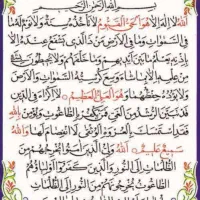 بِسْمِ اللهِ الرَّحْمٰنِ الرَّحِيْمِ
اَللهُ لَا اِلٰهَ اِلَّا هُوَ الْحَيُّ الْقَيُّوْمُ لَا تَأْخُذُهُ سِنَةٌ وَلَا نَوْمٌ لَهُ مَا
فِي السَّمٰوَاتِ وَمَا فِي الْاَرْضِ مَنْ ذَا الَّذِي يَشْفَعُ عِنْدَهُ اِلَّا
بِاِذْنِهِ يَعْلَمُ مَا بَيْنَ اَيْدِيْهِمْ وَمَا خَلْفَهُمْ وَلَا يُحِيْطُوْنَ بِشَيْءٍ
مِنْ عِلْمِهِ اِلَّا بِمَا شَاءَ وَسِعَ كُرْسِيُّهُ السَّمٰوَاتِ وَالْاَرْضَ
وَلَا يَؤُدُهُ حِفْظُهُمَا وَهُوَ الْعَلِيُّ الْعَظِيْمُ لَا اِكْرَاهَ فِي الدِّيْنِ
قَدْ تَبَيَّنَ الرُّشْدُ مِنَ الْغَيِّ فَمَنْ يَكْفُرْ بِالطَّاغُوْتِ وَيُؤْمِنْ بِاللهِ
فَقَدِ اسْتَمْسَكَ بِالْعُرْوَةِ الْوُثْقٰى لَا انْفِصَامَ لَهَا وَاللهُ
سَمِيْعٌ عَلِيْمٌ اَللهُ وَلِيُّ الَّذِيْنَ اٰمَنُوْا يُخْرِجُهُمْ مِنَ
الظُّلُمَاتِ اِلَى النُّوْرِ وَالَّذِيْنَ كَفَرُوْا اَوْلِيَاؤُهُمُ
الطَّاغُوْتُ يُخْرِجُوْنَهُمْ مِنَ النُّوْرِ اِلَى الظُّلُمَاتِ